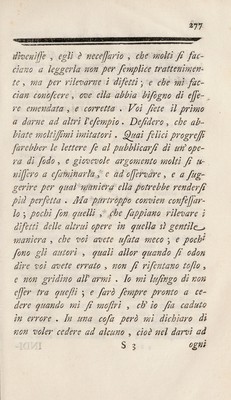 277
divenisse , egli è necessario , che molti si fac-
ciano a leggerla non per semplice trattenimen-
te , ma per rilevarne i difetti ; e che mi fac-
cian conoscere , ove ella abbia bisogno di esse-
re emendata , e corretta . Voi siete il primo
a darne ad altri l'esempio . Desidero , che ab-
biate moltissimi imitatori . Quai felici progressi
farebber le lettere se al pubblicarsi di un' ope-
ra di sodo , e giovevole argomento molti si u-
nissero a esaminarla , e ad osservare , e a sug-
gerire per qual maniera ella potrebbe rendersi
più perfetta . Ma partroppo convien confessar-
lo ; pochi son quelli , che sappiano rilevare i
difetti delle altrui opere in quella sì gentile
maniera , che voi avete usata meco ; e pochi
sono gli autori , quali allor quando si odon
dire voi avete errato , non si risentano tosto ,
e non gridino all' armi . Io mi lusingo di non
esser tra questi ; e sarò sempre pronto a ce-
dere quando mi si mostri , ch' io sia caduto
in errore . In una cosa però mi dichiaro di
non voler cedere ad alcuno , cioè nel darvi ad
S 3 ogni